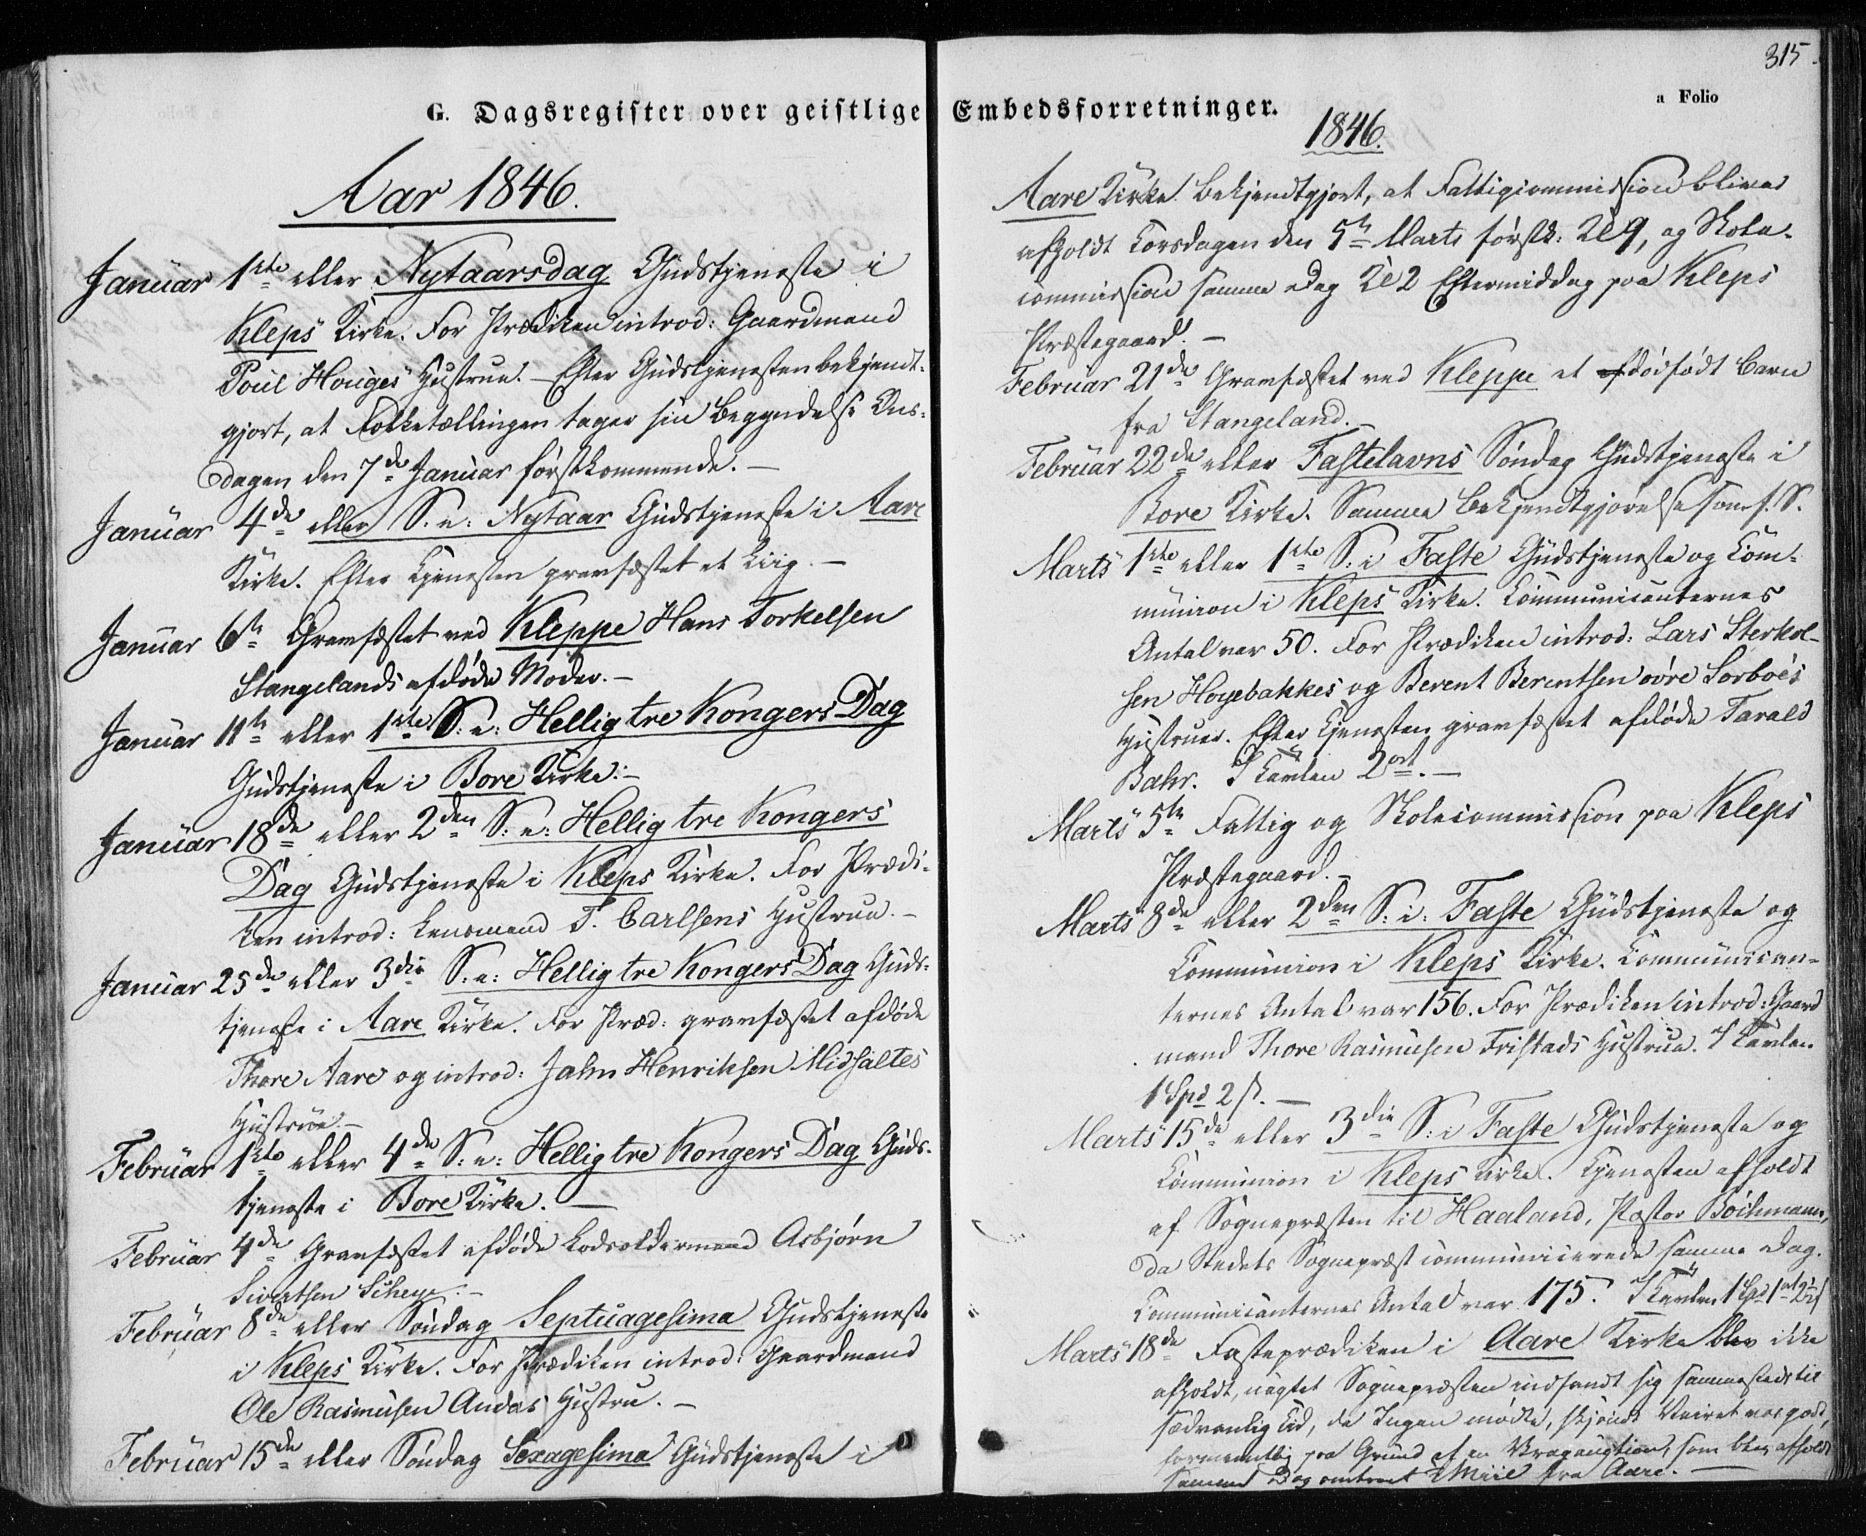 315.
a Folio
G. Dagsregister over geistlige Embedsforretninger.
Aar 1846.
Januar 1ste eller Nytaarsdag Gudstjeneste i
Kleps Kirke. For Prædiken introd: Gaardmand
Poul Houges Hustrue. – Efter Gudstjenesten bekjendt-
gjort, at Folketællingen tager sin Begyndelse Ons-
dagen den 7de Januar førstkommende. –
Januar 4de eller S. e: Nytaar Gudstjeneste i Aare
Kirke. Efter Tjenesten gravfæstet et Liig. –
Januar 6te Gravfæstet ved Kleppe Hans Torkelsen
Stangelands afdøde Moder. –
Januar 11te eller 1ste S: e: Hellig tre Kongers Dag
Gudstjeneste i Bore Kirke. –
Januar 18de eller 2den S: e: Hellig tre Kongers
Dag Gudstjeneste i Kleps Kirke. For Prædi-
ken introd: Lensmand T. Carlsens Hustrue. –
Januar 25de eller 3die S: e: Hellig tre Kongers Dag Guds-
tjeneste i Aare Kirke. For Præd: gravfæstet afdøde
Thore Aare og introd: Jahn Henriksen Midsaltes
Hustrue. –
Februar 1ste eller 4de S: e: Hellig tre Kongers Dag Guds-
tjeneste i Bore Kirke. –
Februar 4de Gravfæstet afdøde Lodsoldermand Asbjørn
Sivertsen Scheye. –
Februar 8de eller Søndag Septuagesima Gudstjeneste
i Kleps Kirke. For Prædiken introd: Gaardmand
Ole Rasmusen Andas Hustru. –
Februar 15de eller Søndag Sexagesima Gudstjeneste i
1846.
Aare Kirke. Bekjendtgjort, at Fattigcommission bliver
afholdt Torsdagen den 5te Marts førstk: Kl 9, og Skole-
commission samme Dag Kl 2 Eftermiddag paa Kleps
Præstegaard. –
Februar 21de Gravfæstet ved Kleppe et dødfødt Barn
fra Stangeland. –
Februar 22de eller Fastelavns Søndag Gudstjeneste i
Bore Kirke. Samme Bekjendtgjørelse som f. S.
Marts 1ste eller 1ste S: i Faste Gudstjeneste og Com-
munion i Kleps Kirke. Communicanternes
Antal var 50. For Prædiken introd: Lars Sterkol-
sen Hoyebakkes og Berent Berentsen øvre Sorboes
Hustruer. Efter Tjenesten gravfæstet afdøde Tarald
Bahr. I Tavlen 2 ort. –
Marts 5te Fattig og Skolecommission paa Kleps
Præstegaard. –
Marts 8de eller 2den S: i: Faste Gudstjeneste og
Communion i Kleps Kirke. Communican-
ternes Antal var 156. For Prædiken introd: Gaard
mand Thore Rasmusen Fristads Hustrue. I Tavlen
1 Spd 2 ß. –
Marts 15de eller 3die S: i Faste Gudstjeneste og
Communion i Kleps Kirke. Tjenesten afholdt
af Sognepræsten til Haaland, Pastor Bøckmann,
da Stedets Sognepræst communicerede samme Dag.
Communicanternes Antal var 175. I Tavlen 1 Spd 1 ort 2½ ß
Marts 18de Fasteprædiken i Aare Kirke blev ikke
afholdt, uagtet Sognepræsten indfandt sig sammesteds til
sædvanlig Tid, da Ingen mødte, skjøndt Veiret var godt,
formeentlig paa Grund af en Vragauction, som blev afholdt
samme Dag omtrent Miil fra Aare. –